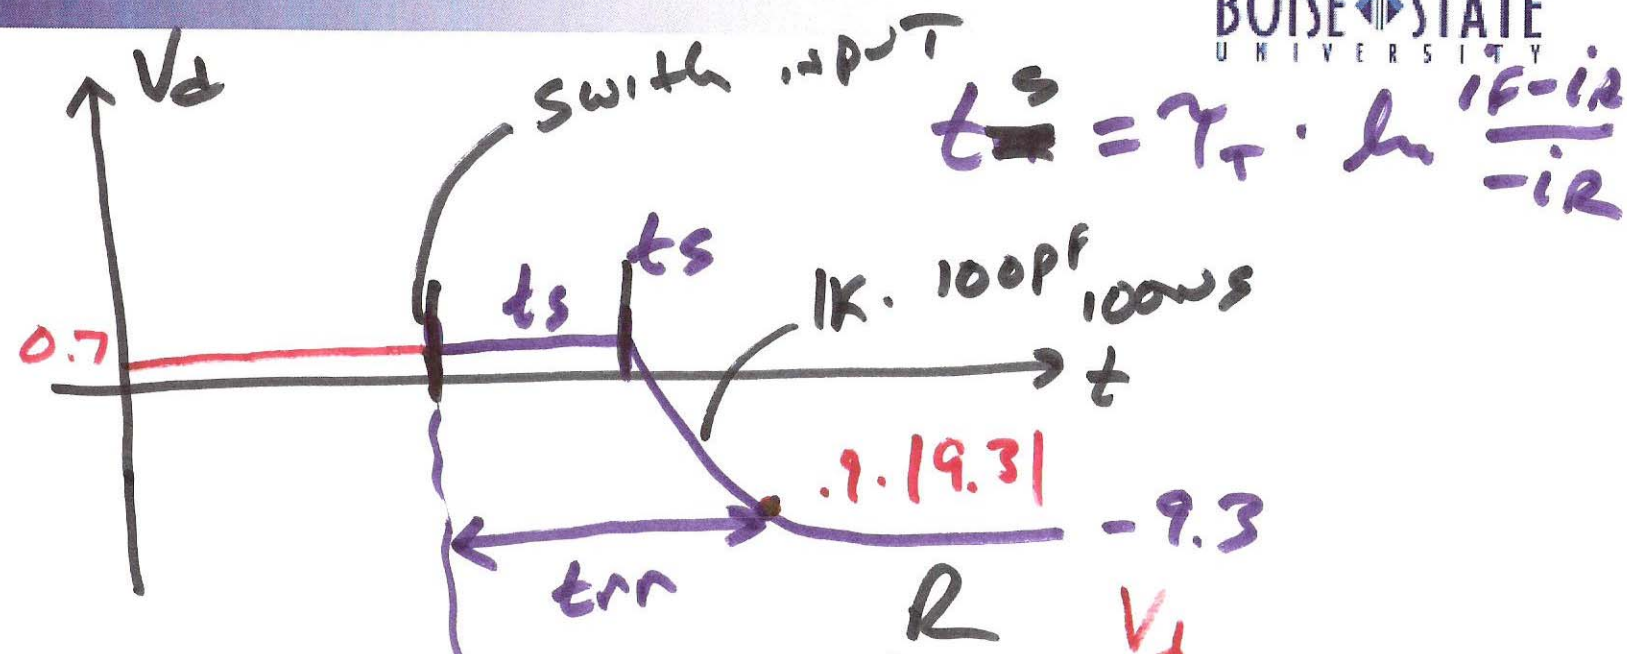 BOISE STATE
UNIVERSITY
Vd
Swith input
ts = τT · ln iF-iR / -iR
ts
ts
1K · 100pF 100ns
0.7
t
.9 · |9.3|
-9.3
trr
R
Vd